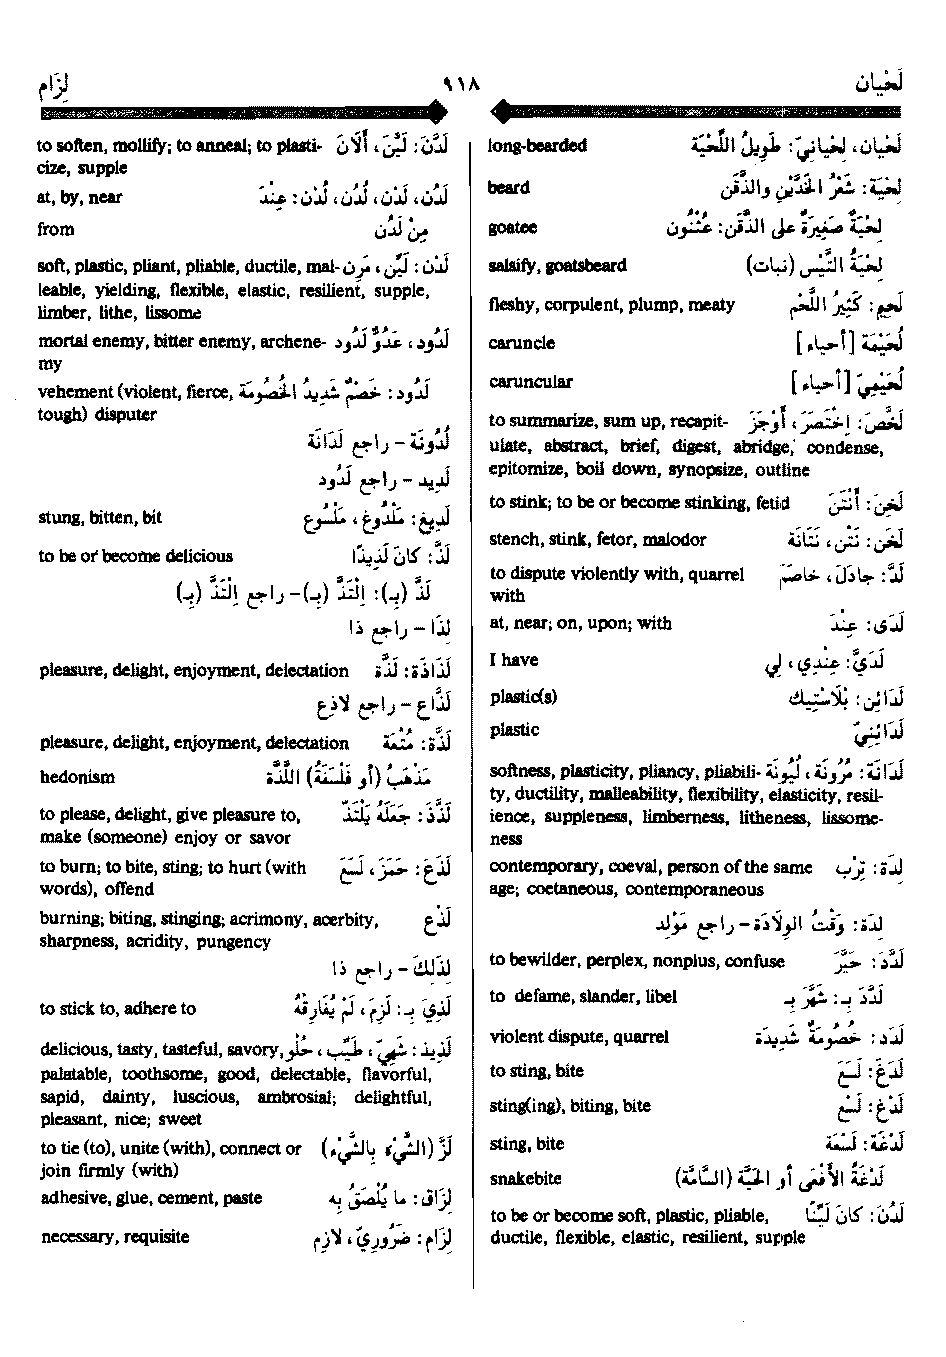 لَحْيان ٩١٨ لِزَام
long-bearded لَحْيَان، لِحْيَانيّ: طَوِيلُ اللِّحْيَة
beard لِحْيَة: شَعْرُ الخَدَّيْنِ والذَّقَن
goatee لِحْيَةٌ صَغِيرَةٌ على الذَّقَن: عُثْنُون
salsify, goatsbeard لِحْيَةُ التَّيْس (نبات)
fleshy, corpulent, plump, meaty لَحِيم: كَثِيرُ اللَّحْم
caruncle لُحَيْمَة [أحياء]
caruncular لُحَيْمِيّ [أحياء]
to summarize, sum up, recapit- لَخَّصَ: اِخْتَصَرَ، أَوْجَزَ
ulate, abstract, brief, digest, abridge, condense,
epitomize, boil down, synopsize, outline
to stink; to be or become stinking, fetid لَخِنَ: أَنْتَنَ
stench, stink, fetor, malodor لَخَن: نَتْن، نَتَانَة
to dispute violently with, quarrel لَدَّ: جادَلَ، خاصَمَ
with
at, near; on, upon; with لَدَى: عِنْدَ
I have لَدَيَّ: عِنْدِي، لِي
plastic(s) لَدَائِن: بْلَاسْتِيك
plastic لَدَائِنِيّ
softness, plasticity, pliancy, pliabili- لَدَانَة: مُرُونَة، لُيُونَة
ty, ductility, malleability, flexibility, elasticity, resil-
ience, suppleness, limberness, litheness, lissome-
ness
contemporary, coeval, person of the same لِدَة: تِرْب
age; coetaneous, contemporaneous
لِدَة: وَقْتُ الوِلَادَة – راجع مَوْلِد
to bewilder, perplex, nonplus, confuse لَدَّدَ: حَيَّرَ
to defame, slander, libel لَدَّدَ بِـ: شَهَّرَ بِـ
violent dispute, quarrel لَدَد: خُصُومَةٌ شَدِيدَة
to sting, bite لَدَغَ: لَسَعَ
sting(ing), biting, bite لَدْغ: لَسْع
sting, bite لَدْغَة: لَسْعَة
snakebite لَدْغَةُ الأَفْعَى أو الحَيَّة (السَّامَّة)
to be or become soft, plastic, pliable, لَدُنَ: كانَ لَيِّنًا
ductile, flexible, elastic, resilient, supple
to soften, mollify; to anneal; to plasti- لَدَّنَ: لَيَّنَ، أَلَانَ
cize, supple
at, by, near لَدُن، لَدْن، لَدُن، لُدْن: عِنْدَ
from مِنْ لَدُن
soft, plastic, pliant, pliable, ductile, mal- لَدْن: لَيِّن، مَرِن
leable, yielding, flexible, elastic, resilient, supple,
limber, lithe, lissome
mortal enemy, bitter enemy, archene- لَدُود، عَدُوٌّ لَدُود
my
vehement (violent, fierce, لَدُود: خَصْمٌ شَدِيدُ الخُصُومَة
tough) disputer
لُدُونَة – راجع لَدَانَة
لَدِيد – راجع لَدُود
stung, bitten, bit لَدِيغ: مَلْدُوغ، مَلْسُوع
to be or become delicious لَذَّ: كانَ لَذِيذًا
لَذَّ (بِـ): اِلْتَذَّ (بِـ) – راجع اِلْتَذَّ (بِـ)
لِذَا – راجع ذا
pleasure, delight, enjoyment, delectation لَذَاذَة: لَذَّة
لَذَّاع – راجع لاذِع
pleasure, delight, enjoyment, delectation لَذَّة: مُتْعَة
hedonism مَذْهَبُ (أو فَلْسَفَةُ) اللَّذَّة
to please, delight, give pleasure to, لَذَّذَ: جَعَلَهُ يَلْتَذّ
make (someone) enjoy or savor
to burn; to bite, sting; to hurt (with لَذَعَ: حَمَزَ، لَسَعَ
words), offend
burning; biting, stinging; acrimony, acerbity, لَذْع
sharpness, acridity, pungency
لِذَلِكَ – راجع ذا
to stick to, adhere to لَذِيَ بِـ: لَزِمَ، لَمْ يُفَارِقْهُ
delicious, tasty, tasteful, savory, لَذِيذ: شَهِيّ، طَيِّب، حُلْو
palatable, toothsome, good, delectable, flavorful,
sapid, dainty, luscious, ambrosial; delightful,
pleasant, nice; sweet
to tie (to), unite (with), connect or لَزَّ (الشَّيْءَ بِالشَّيْءِ)
join firmly (with)
adhesive, glue, cement, paste لِزَاق: ما يُلْصَقُ بِهِ
necessary, requisite لِزَام: ضَرُورِيّ، لازِم